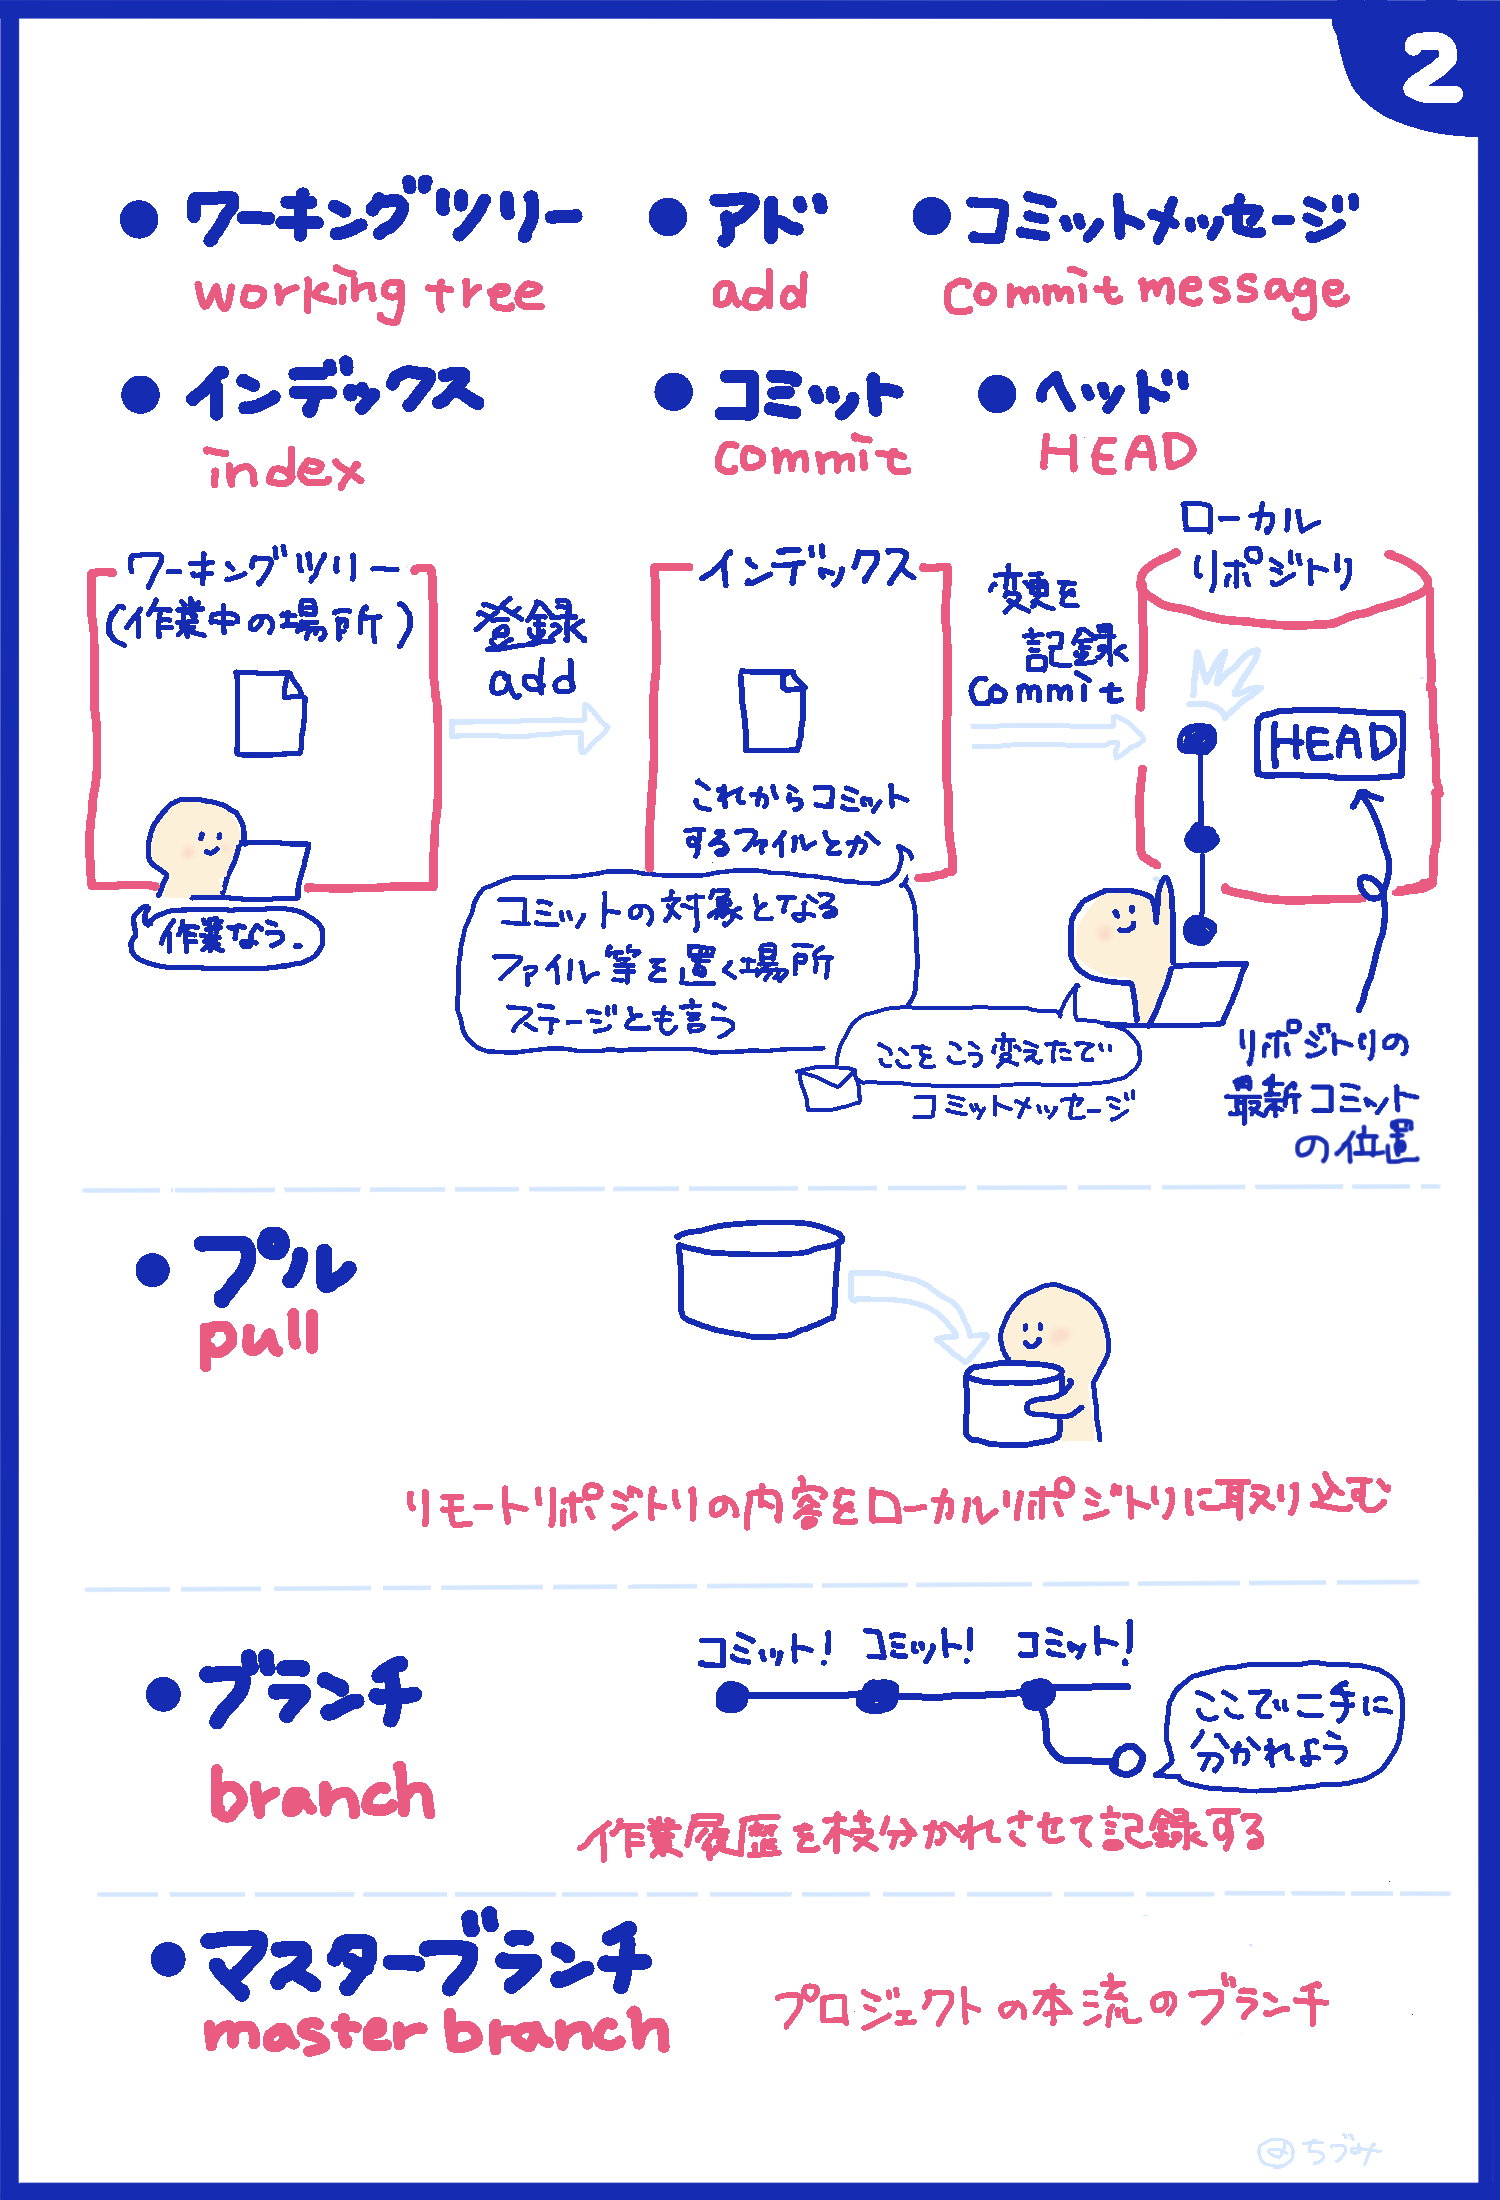 2
● ワーキングツリー
working tree
● アド
add
● コミットメッセージ
commit message
● インデックス
index
● コミット
commit
● ヘッド
HEAD
ワーキングツリー
(作業中の場所)
作業なう.
登録
add
インデックス
これからコミット
するファイルとか
コミットの対象となる
ファイル等を置く場所
ステージとも言う
変更を
記録
commit
ローカル
リポジトリ
HEAD
ここをこう変えたで
コミットメッセージ
リポジトリの
最新コミット
の位置
● プル
pull
リモートリポジトリの内容をローカルリポジトリに取り込む
● ブランチ
branch
コミット! コミット! コミット!
ここで二手に
分かれよう
作業履歴を枝分かれさせて記録する
● マスターブランチ
master branch
プロジェクトの本流のブランチ
@ちづみ